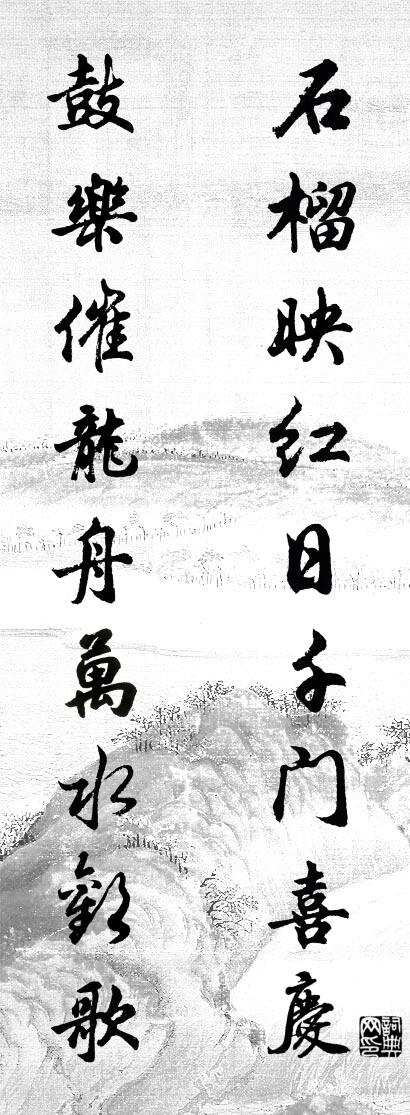 石榴映红日千门喜慶
鼓樂催龍舟萬水歡歌
詞典网印